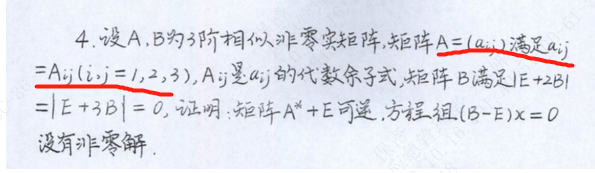 4. 设A,B为3阶相似非零实矩阵,矩阵A=(aij)满足aij
=Aij(i,j=1,2,3), Aij是aij的代数余子式,矩阵B满足|E+2B|
=|E+3B|=0, 证明:矩阵A*+E可逆,方程组(B-E)x=0
没有非零解.